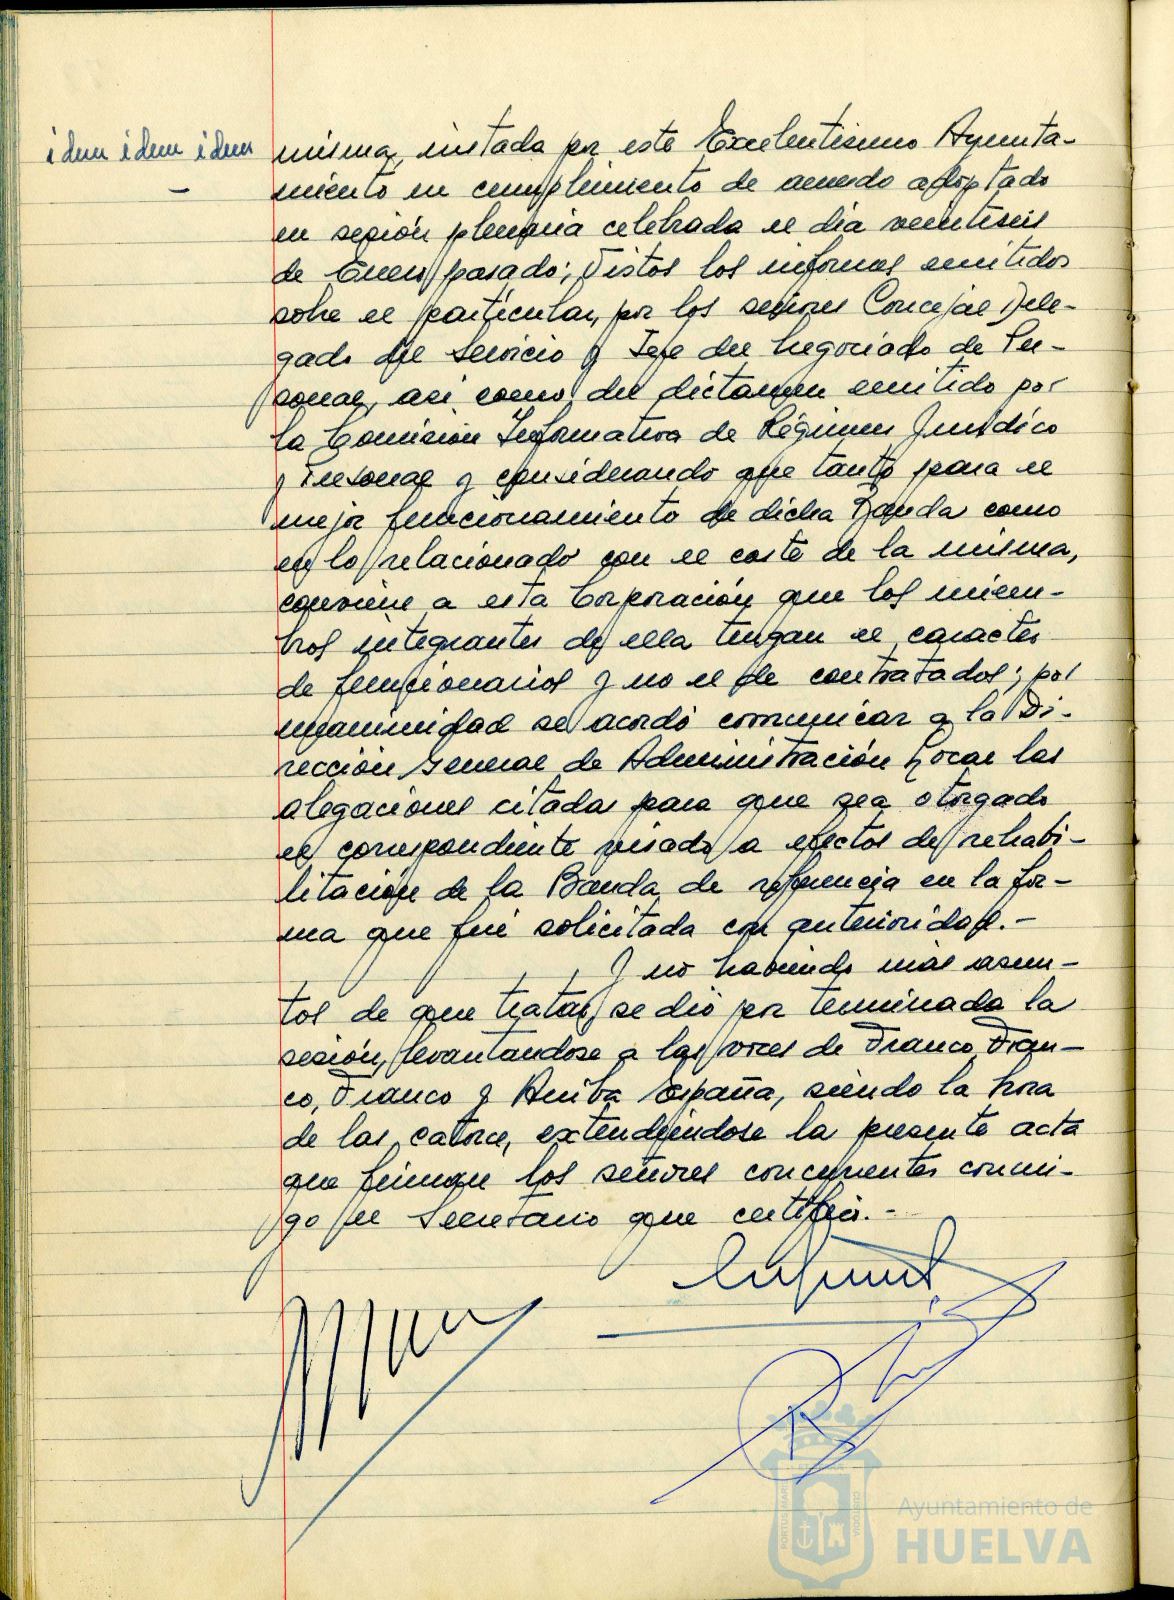 idem idem idem
misma, instada por este Excelentisimo Ayunta-
miento en cumplimiento de acuerdo adoptado
en sesión plenaria celebrada el dia veintiseis
de Enero pasado; Vistos los informes emitidos
sobre el particular, por los señores Concejal Dele-
gado del Servicio y Jefe del Negociado de Per-
sonal, asi como del dictamen emitido por
la Comisión Informativa de Régimen Juridico
y Personal y considerando que tanto para el
mejor funcionamiento de dicha Banda como
en lo relacionado con el coste de la misma,
conviene a esta Corporación que los miem-
bros integrantes de ella tengan el caracter
de funcionarios y no el de contratados; por
unanimidad se acordó comunicar a la Di-
rección General de Administración Local las
alegaciones citadas para que sea otorgado
el correspondiente visado a efectos de rehabi-
litación de la Banda de referencia en la for-
ma que fué solicitada con anterioridad.-
Y no habiendo más asun-
tos de que tratar, se dió por terminada la
sesión, levantandose a las voces de Franco, Fran-
co, Franco y Arriba España, siendo la hora
de las catorce, extendiéndose la presente acta
que firman los señores concurrentes conmi-
go el Secretario que certifico.-
PORTUS MARIS
CUSTODIA
Ayuntamiento de
HUELVA